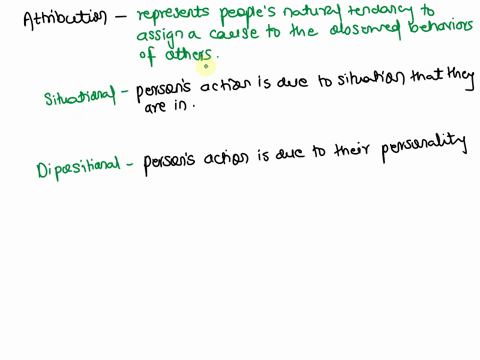 Attribution - represents people's natural tendancy to
assign a cause to the observed behaviors
of others.
Situational - person's action is due to situation that they
are in.
Dipositional - person's action is due to their personality